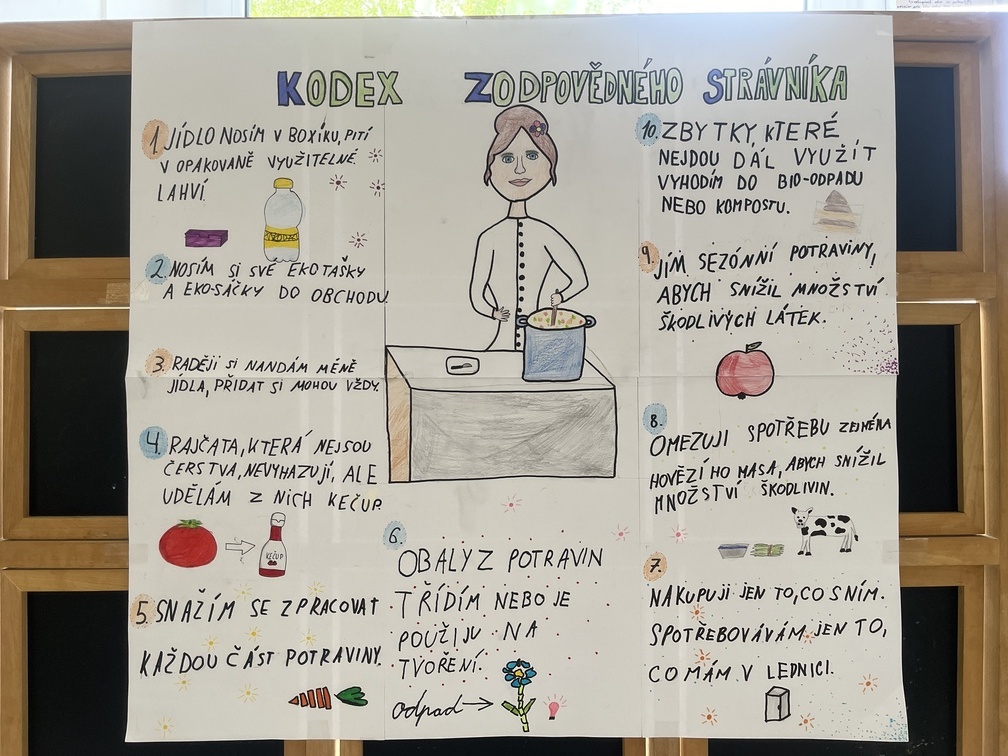 KODEX ZODPOVĚDNÉHO STRÁVNÍKA
1. JÍDLO NOSÍM V BOXÍKU, PITÍ
V OPAKOVANĚ VYUŽITELNÉ
LAHVI.
2. NOSÍM SI SVÉ EKOTAŠKY
A EKO-SÁČKY DO OBCHODU.
3. RADĚJI SI NANDÁM MÉNĚ
JÍDLA, PŘIDAT SI MOHU VŽDY.
4. RAJČATA, KTERÁ NEJSOU
ČERSTVÁ, NEVYHAZUJI, ALE
UDĚLÁM Z NICH KEČUP.
KEČUP
5. SNAŽÍM SE ZPRACOVAT
KAŽDOU ČÁST POTRAVINY.
6.
OBALY Z POTRAVIN
TŘÍDÍM NEBO JE
POUŽIJU NA
TVOŘENÍ.
odpad
7.
NAKUPUJI JEN TO, CO SNÍM.
SPOTŘEBOVÁVÁM JEN TO,
CO MÁM V LEDNICI.
8.
OMEZUJI SPOTŘEBU ZEJMÉNA
HOVĚZÍHO MASA, ABYCH SNÍŽIL
MNOŽSTVÍ ŠKODLIVIN.
9. JÍM SEZÓNNÍ POTRAVINY,
ABYCH SNÍŽIL MNOŽSTVÍ
ŠKODLIVÝCH LÁTEK.
10. ZBYTKY, KTERÉ
NEJDOU DÁL VYUŽÍT
VYHODÍM DO BIO-ODPADU
NEBO KOMPOSTU.